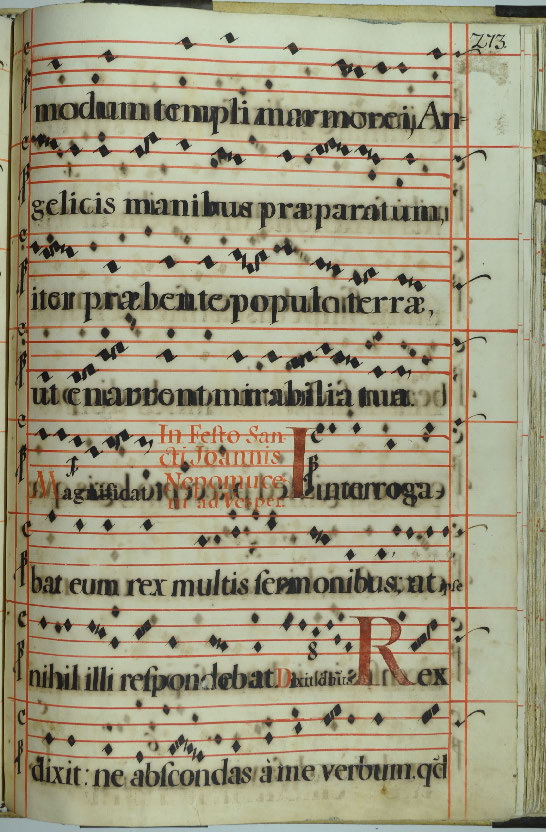 273.
modum templi marmorei, An=
gelicis manibus præparatum,
iter præbente populo terræ,
ut enarrent mirabilia tua.
In Festo San-
cti Joannis
Nepomuce-
ni ad Vesper.
Magnificat. Interroga-
bat eum rex multis sermonibus: at ipse
nihil illi respondebat. Dixit Dñus Rex
dixit: ne abscondas a me verbum. qd̄